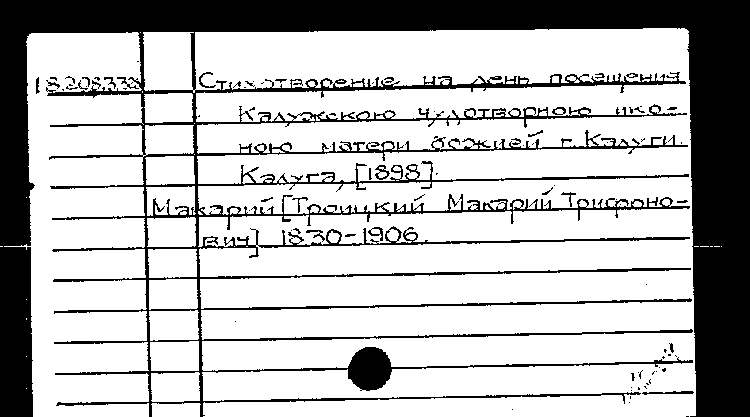 18.208.338 Стихотворение на день посещения
Калужскою чудотворною ико-
ною матери божией г. Калуги.
Калуга, [1898].
Макарий [Троицкий Макарий Трифоно-
вич] 1830-1906.